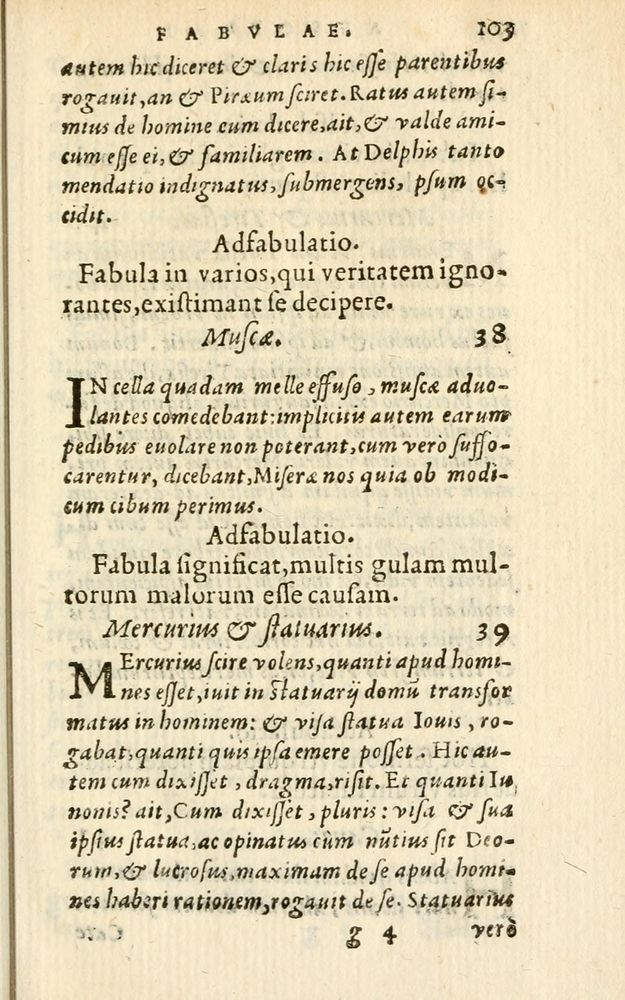 FABVLAE. 103
autem hic diceret & claris hic eſſe parentibus
rogauit, an & Piræum ſciret. Ratus autem ſi-
mius de homine eum dicere, ait, & valde ami-
cum eſſe ei, & familiarem. At Delphis tanto
mendatio indignatus, ſubmergens, pſum oc-
cidit.
Adfabulatio.
Fabula in varios, qui veritatem igno-
rantes, exiſtimant ſe decipere.
Muſcæ. 38
IN cella quadam melle effuſo, muſcæ aduo-
lantes comedebant: implicitis autem earum
pedibus euolare non poterant, cum verò ſuffo-
carentur, dicebant, Miſeræ nos quia ob modi-
cum cibum perimus.
Adfabulatio.
Fabula ſignificat, multis gulam mul-
torum malorum eſſe cauſam.
Mercurius & ſtatuarius. 39
MErcurius ſcire volens, quanti apud homi-
nes eſſet, iuit in ſtatuarij domū transfor
matus in hominem: & viſa ſtatua Iouis, ro-
gabat, quanti quis ipſa emere poſſet. Hic au-
tem cum dixiſſet, dragma, riſit. Et quanti Iu
nonis? ait, Cum dixiſſet, pluris: viſa & ſua
ipſius ſtatua, ac opinatus cùm nūtius ſit Deo-
rum, & lucroſus, maximam de ſe apud homi-
nes haberi rationem, rogauit de ſe. Statuarius
g 4 verò